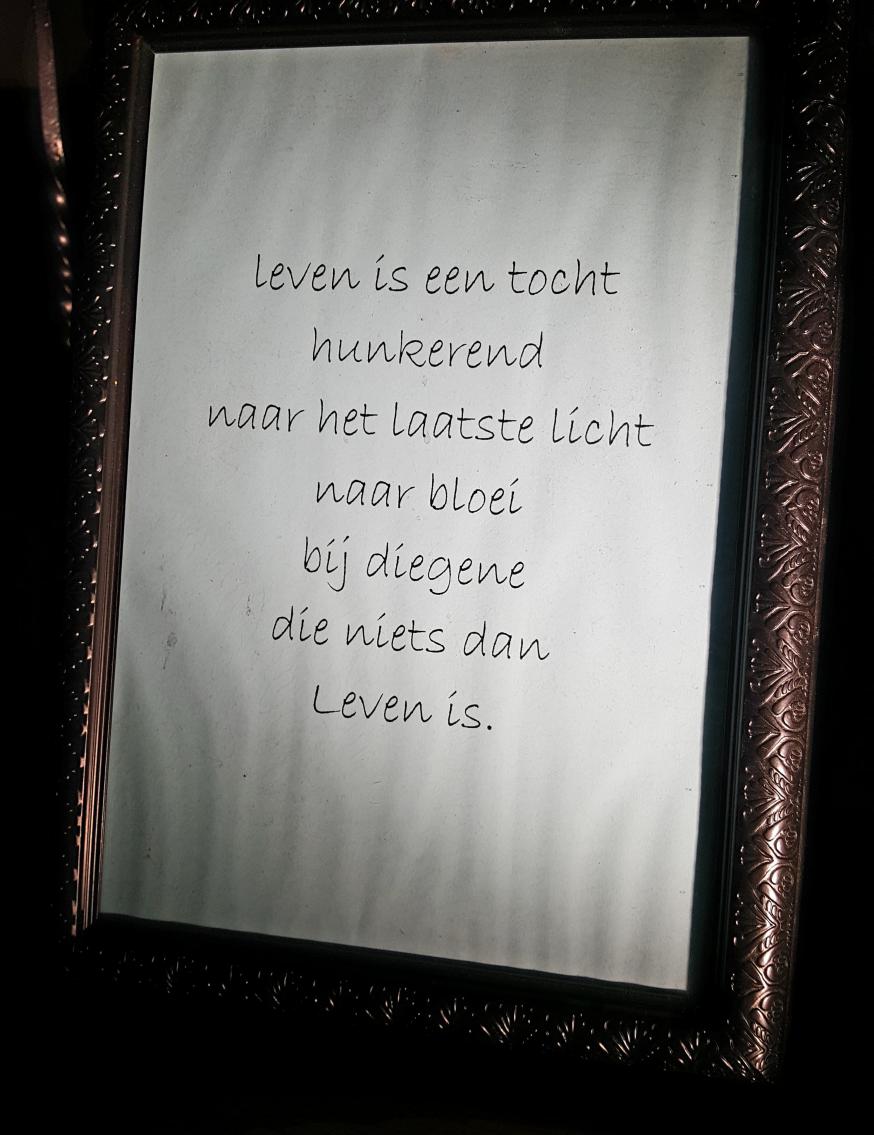 leven is een tocht
hunkerend
naar het laatste licht
naar bloei
bij diegene
die niets dan
Leven is.